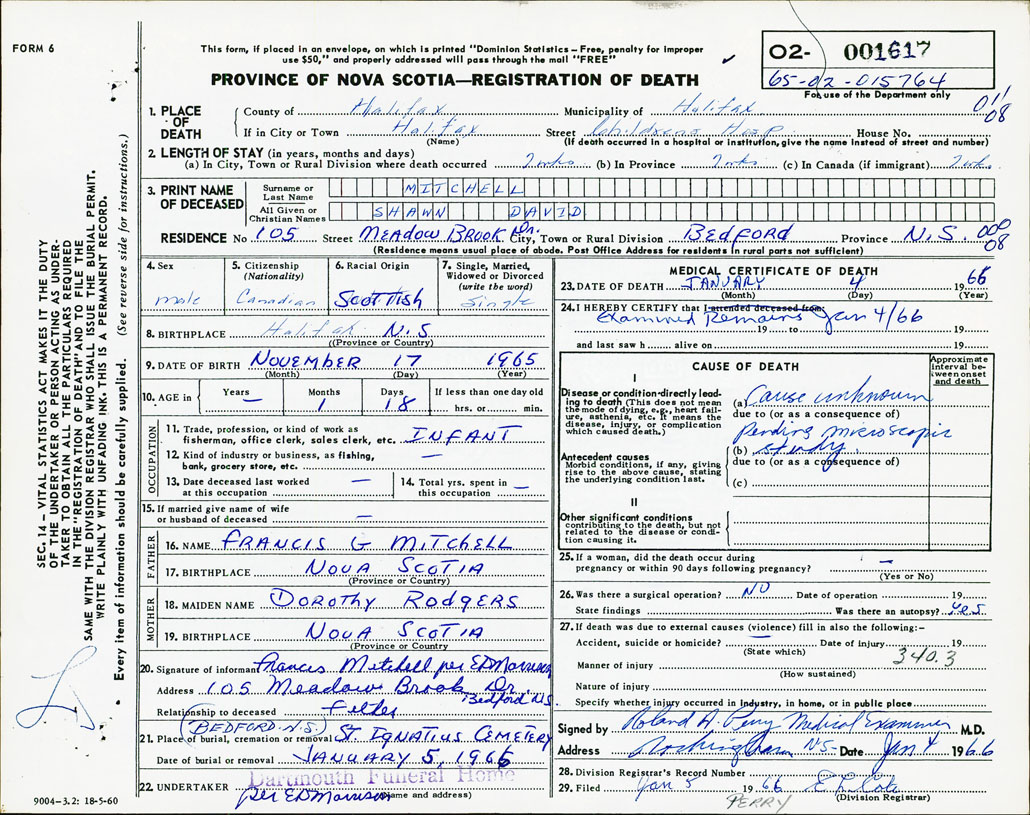 FORM 6
This form, if placed in an envelope, on which is printed "Dominion Statistics—Free, penalty for improper
use $50," and properly addressed will pass through the mail "FREE"
PROVINCE OF NOVA SCOTIA—REGISTRATION OF DEATH
02- 001617
65-02-015764
For use of the Department only
011
08
SEC. 14 – VITAL STATISTICS ACT MAKES IT THE DUTY
OF THE UNDERTAKER OR PERSON ACTING AS UNDER-
TAKER TO OBTAIN ALL THE PARTICULARS REQUIRED
IN THE "REGISTRATION OF DEATH" AND TO FILE THE
SAME WITH THE DIVISION REGISTRAR WHO SHALL ISSUE THE BURIAL PERMIT.
WRITE PLAINLY WITH UNFADING INK. THIS IS A PERMANENT RECORD.
Every item of information should be carefully supplied. (See reverse side for instructions.)
1. PLACE OF DEATH
County of Halifax Municipality of Halifax
If in City or Town Halifax Street Childrens Hosp House No.
(Name) (If death occurred in a hospital or institution, give the name instead of street and number)
2. LENGTH OF STAY (in years, months and days)
(a) In City, Town or Rural Division where death occurred 7 wks (b) In Province 7 wks (c) In Canada (if immigrant) 7 wks.
3. PRINT NAME OF DECEASED
Surname or Last Name MITCHELL
All Given or Christian Names SHAWN DAVID
RESIDENCE No 105 Street MEADOW BROOK Dr. City, Town or Rural Division BEDFORD Province N.S. 000
08
(Residence means usual place of abode. Post Office Address for residents in rural parts not sufficient)
4. Sex 5. Citizenship (Nationality) 6. Racial Origin 7. Single, Married, Widowed or Divorced (write the word)
male Canadian Scottish Single
8. BIRTHPLACE Halifax N.S
(Province or Country)
9. DATE OF BIRTH NOVEMBER 17 1965
(Month) (Day) (Year)
10. AGE in Years — Months 1 Days 18 If less than one day old hrs. or min.
OCCUPATION
11. Trade, profession, or kind of work as
fisherman, office clerk, sales clerk, etc. INFANT
12. Kind of industry or business, as fishing,
bank, grocery store, etc. —
13. Date deceased last worked at this occupation — 14. Total yrs. spent in this occupation —
15. If married give name of wife
or husband of deceased —
FATHER
16. NAME FRANCIS G MITCHELL
17. BIRTHPLACE NOVA SCOTIA
(Province or Country)
MOTHER
18. MAIDEN NAME DOROTHY RODGERS
19. BIRTHPLACE NOVA SCOTIA
(Province or Country
20. Signature of informant Francis Mitchell per ED Morrison
Address 105 Meadow Brook Dr
Bedford N.S
Relationship to deceased Father
(BEDFORD - N.S)
21. Place of burial, cremation or removal ST IGNATIUS CEMETERY
Date of burial or removal JANUARY 5, 1966
Dartmouth Funeral Home
22. UNDERTAKER per ED Morrison
(Name and address)
9004-3.2: 18-5-60
MEDICAL CERTIFICATE OF DEATH
23. DATE OF DEATH JANUARY 4 1966
(Month) (Day) (Year)
24. I HEREBY CERTIFY that I attended deceased from
Examined Remains 19 to Jan 4/66 19
and last saw h alive on 19
CAUSE OF DEATH
Approximate interval between onset and death
I
Disease or condition directly lead-
ing to death (This does not mean
the mode of dying, e.g., heart fail-
ure, asthenia, etc. It means the
disease, injury, or complication
which caused death.)
(a) Cause unknown
due to (or as a consequence of)
Pending microscopic
Antecedent causes
Morbid conditions, if any, giving
rise to the above cause, stating
the underlying condition last.
(b) study.
due to (or as a consequence of)
(c)
II
Other significant conditions
contributing to the death, but not
related to the disease or condi-
tion causing it.
25. If a woman, did the death occur during
pregnancy or within 90 days following pregnancy? —
(Yes or No)
26. Was there a surgical operation? NO Date of operation 19
State findings Was there an autopsy? Yes
27. If death was due to external causes (violence) fill in also the following:–
Accident, suicide or homicide? — Date of injury 19
(State which) 340.3
Manner of injury
(How sustained)
Nature of injury
Specify whether injury occurred in industry, in home, or in public place
Signed by Roland A. Perry Medical Examiner M.D.
Address Rockingham NS Date Jan 4 1966
28. Division Registrar's Record Number
29. Filed Jan 5 1966 E L Cole
PERRY (Division Registrar)